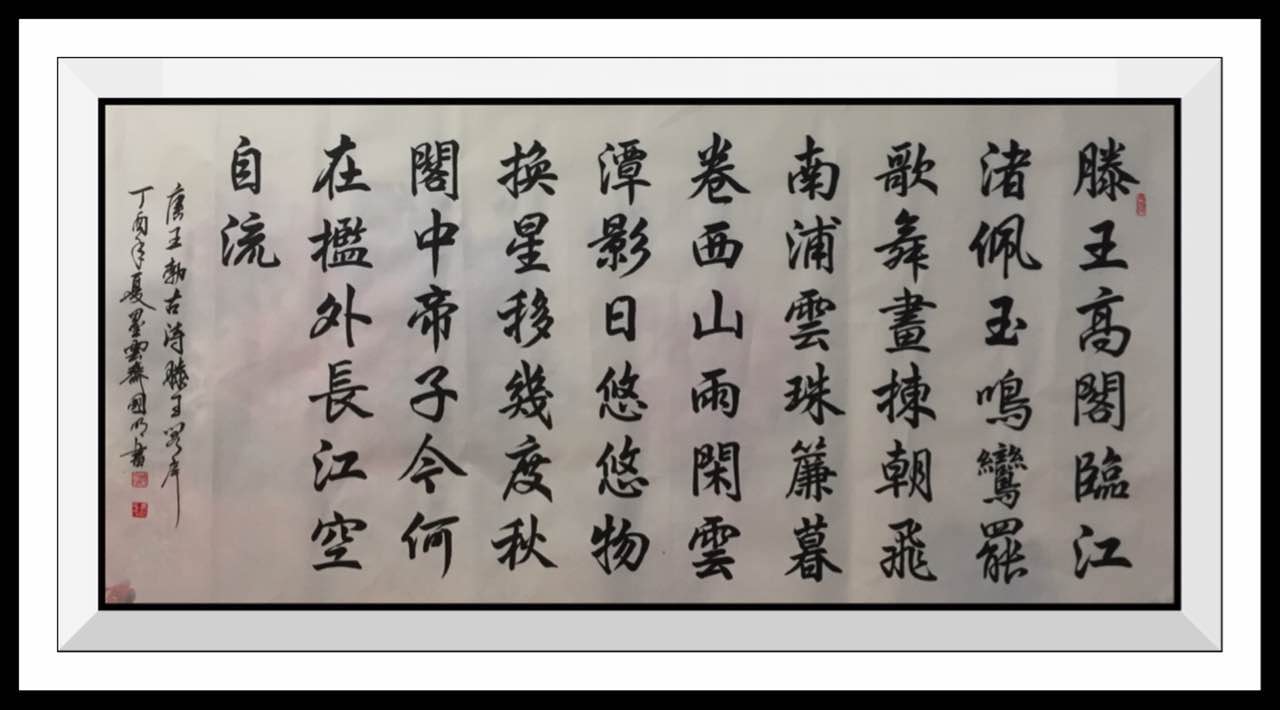 滕王高閣臨江
渚佩玉鳴鸞罷
歌舞畫棟朝飛
南浦雲珠簾暮
卷西山雨閑雲
潭影日悠悠物
換星移幾度秋
閣中帝子今何
在檻外長江空
自流
唐王勃古诗滕王阁序
丁酉年夏墨雲齋國明書